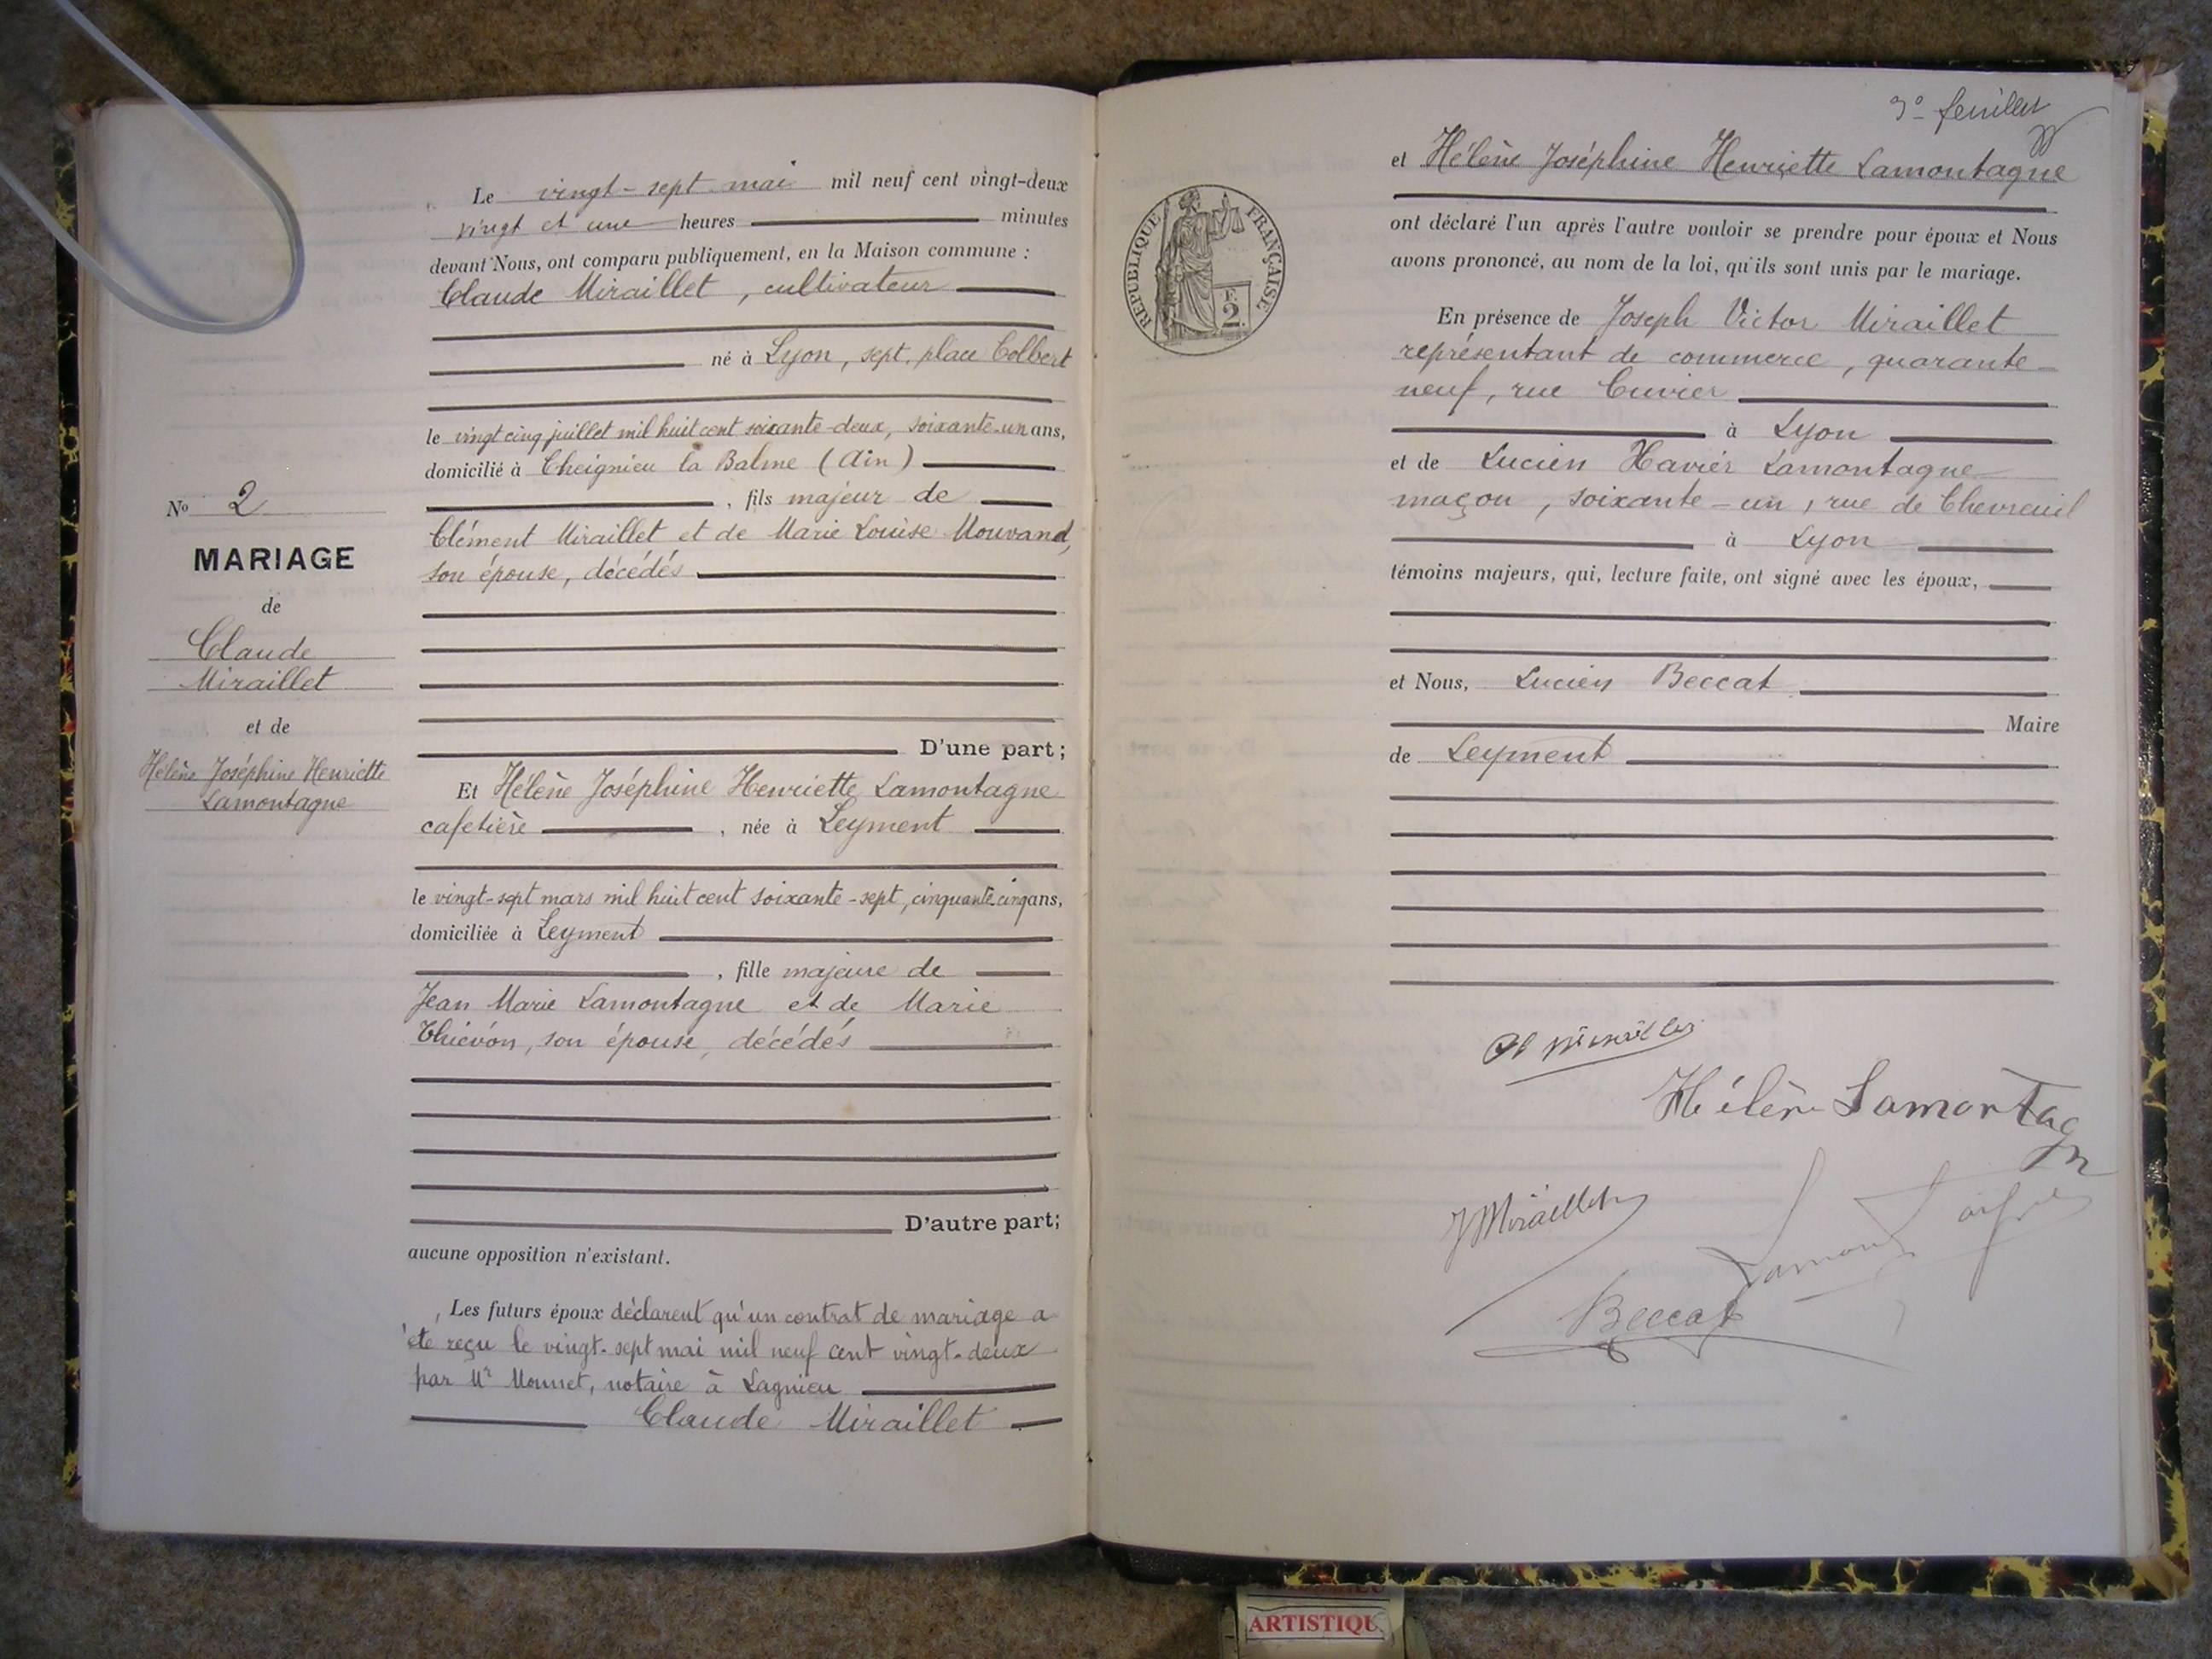 Le vingt-sept mai mil neuf cent vingt-deux
vingt et une heures minutes
devant Nous, ont comparu publiquement, en la Maison commune :
Claude Miraillet, cultivateur
né à Lyon, sept, place Colbert
le vingt cinq juillet mil huit cent soixante-deux, soixante-un ans,
domicilié à Cheignieu la Balme (Ain)
, fils majeur de
Clément Miraillet et de Marie Louise Mouvand,
son épouse, décédés
No 2
MARIAGE
de
Claude
Miraillet
et de
Hélène Joséphine Henriette
Lamontagne
D'une part;
Et Hélène Joséphine Henriette Lamontagne
cafetière , née à Leyment
le vingt-sept mars mil huit cent soixante-sept, cinquante-cinq ans,
domiciliée à Leyment
, fille majeure de
Jean Marie Lamontagne et de Marie
Thiévon, son épouse, décédés
D'autre part;
aucune opposition n'existant.
Les futurs époux déclarent qu'un contrat de mariage a
été reçu le vingt-sept mai mil neuf cent vingt-deux
par Mr Monnet, notaire à Lagnieu
Claude Miraillet
3e feuillet
et Hélène Joséphine Henriette Lamontagne
ont déclaré l'un après l'autre vouloir se prendre pour époux et Nous
avons prononcé, au nom de la loi, qu'ils sont unis par le mariage.
REPUBLIQUE FRANÇAISE
F.
2
En présence de Joseph Victor Miraillet
représentant de commerce, quarante
neuf, rue Cuvier
à Lyon
et de Lucien Xavier Lamontagne
maçon, soixante-un, rue de Chevreuil
à Lyon
témoins majeurs, qui, lecture faite, ont signé avec les époux,
et Nous, Lucien Beccat
Maire
de Leyment
Hélèn Lamontagn
J Miraillet
Beccat
ARTISTIQU